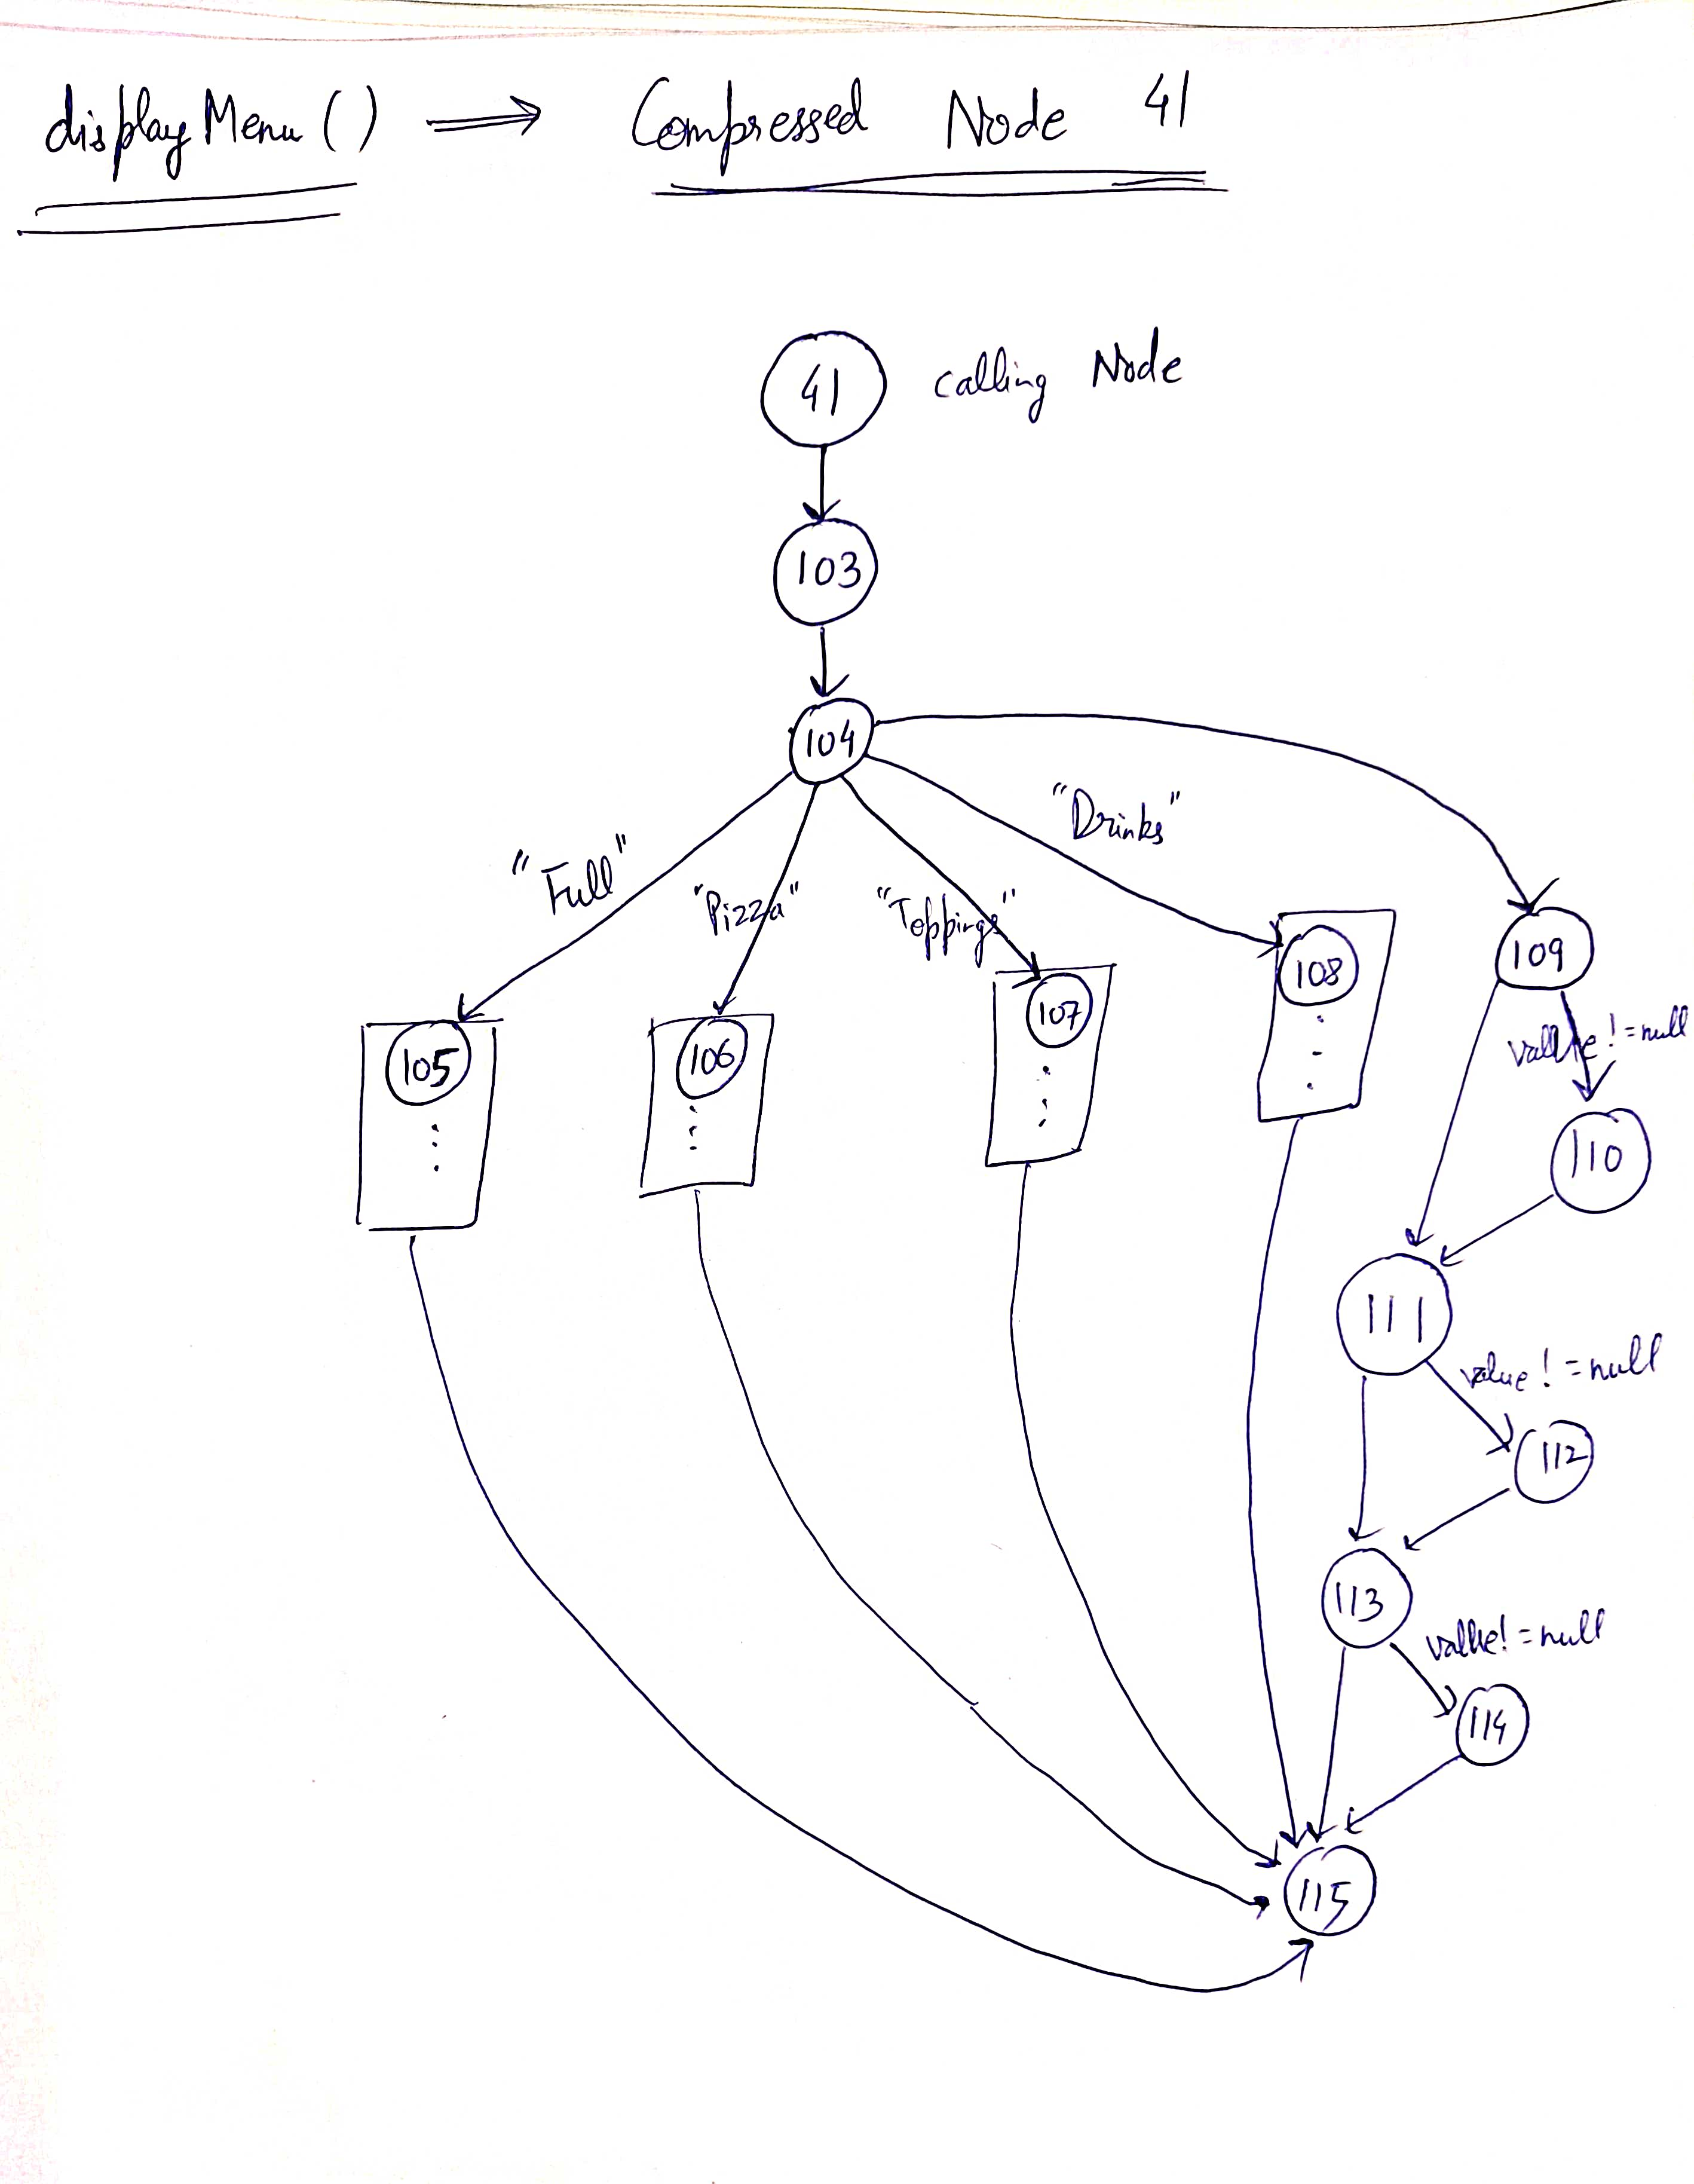 displayMenu() ⟹ Compressed Node 41
41 calling Node
103
104
"Drinks"
"Full"
"Pizza"
"Toppings"
108
109
107
105
106
value != null
110
111
value != null
112
113
value != null
114
115